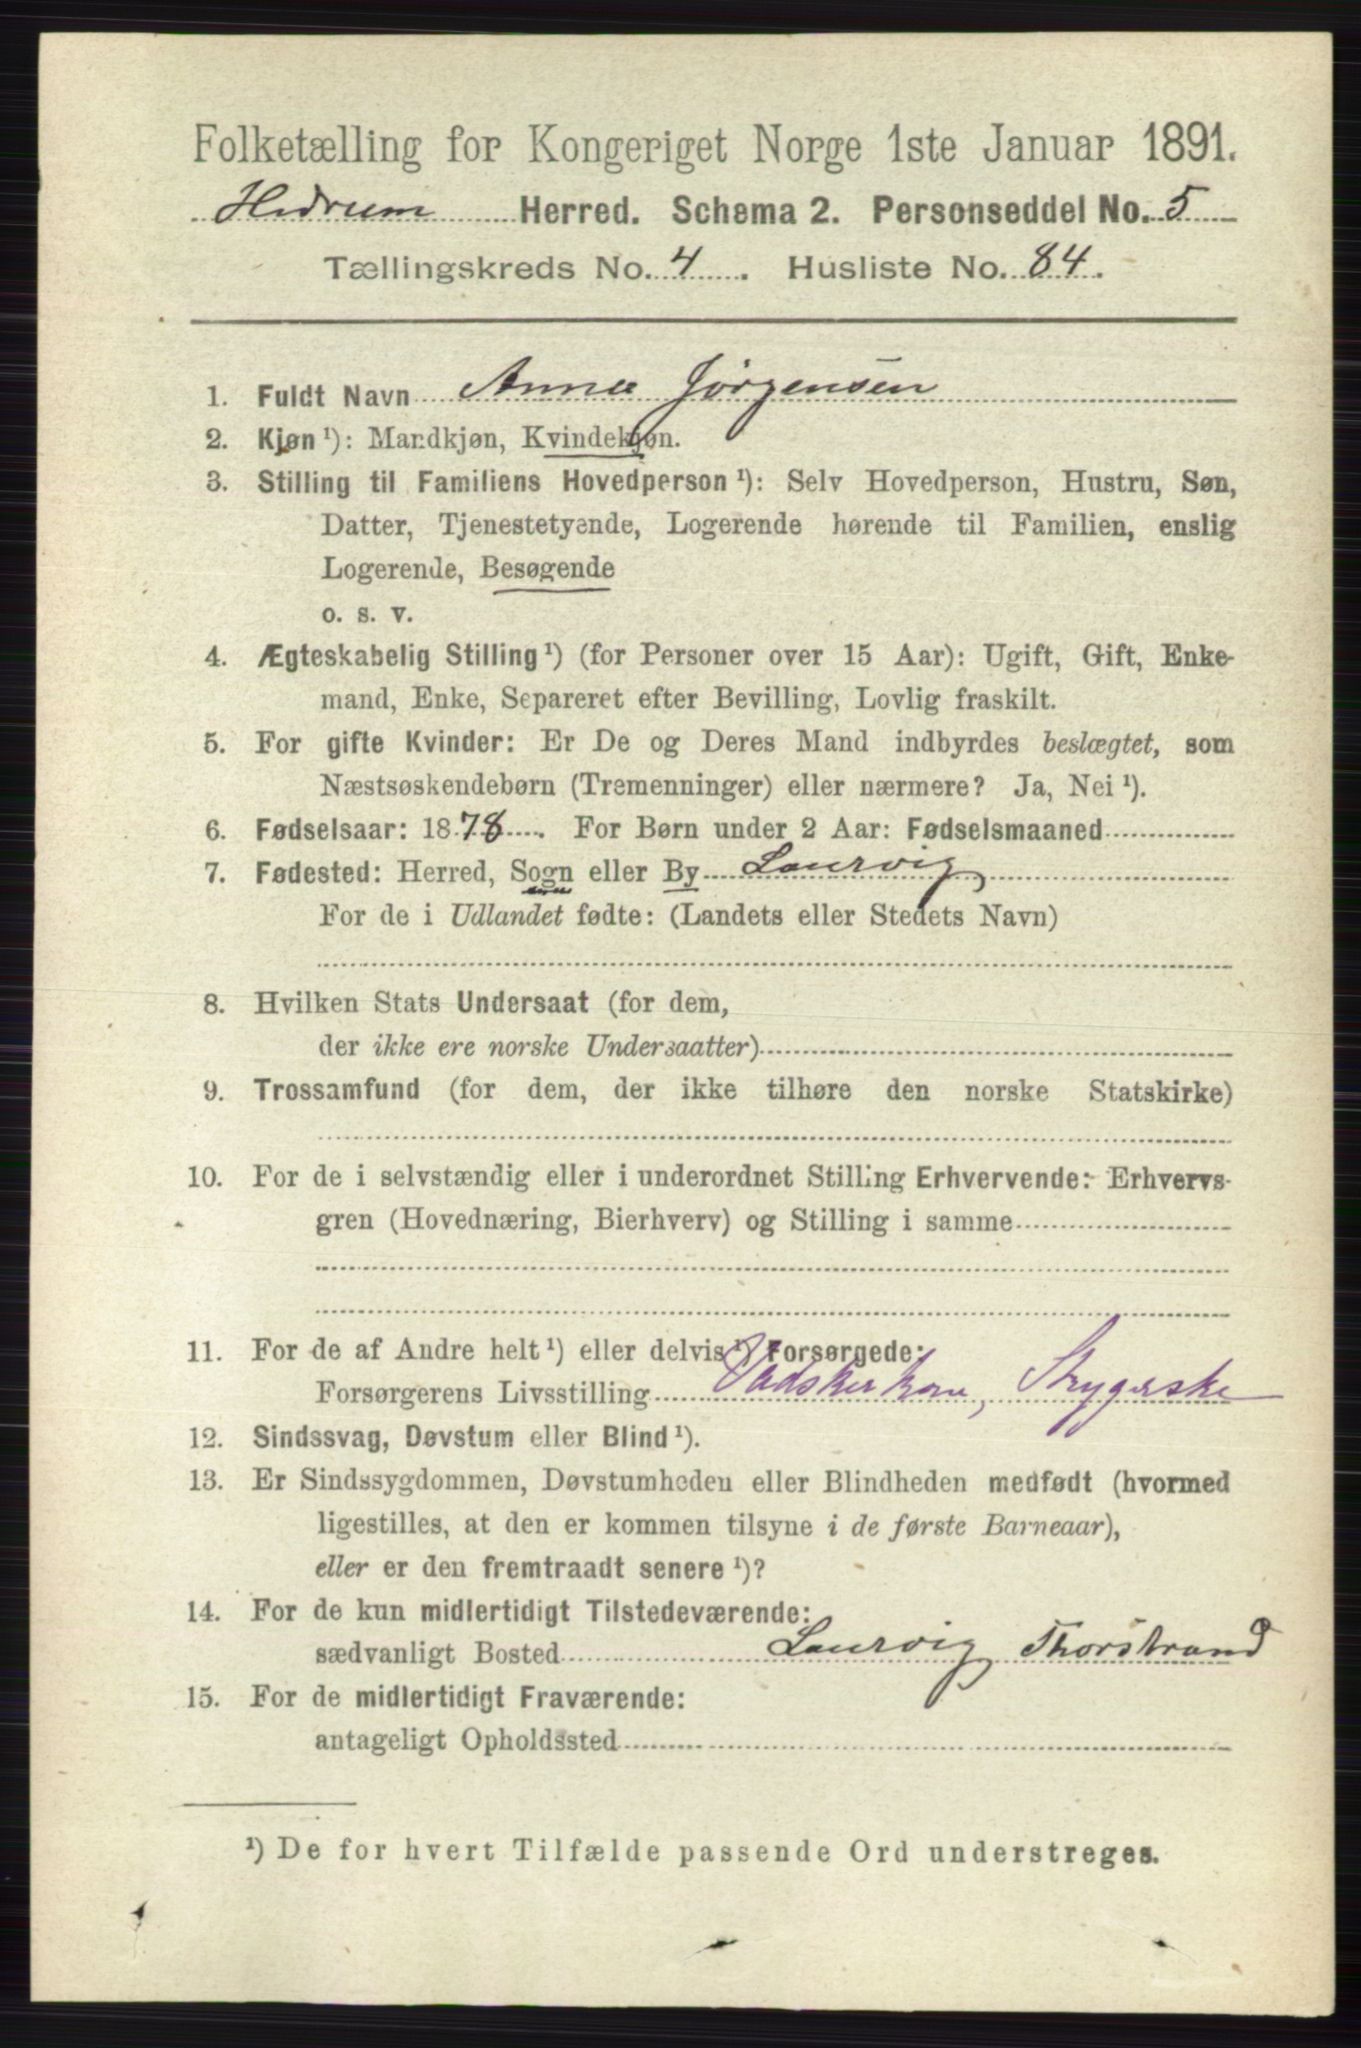 Folketælling for Kongeriget Norge 1ste Januar 1891.
Hedrum Herred. Schema 2. Personseddel No. 5
Tællingskreds No. 4. Husliste No. 84.
1. Fuldt Navn Anna Jörgensen
2. Kjøn ¹): Mandkjøn, Kvindekjøn.
3. Stilling til Familiens Hovedperson ¹): Selv Hovedperson, Hustru, Søn,
Datter, Tjenestetyende, Logerende hørende til Familien, enslig
Logerende, Besøgende
o. s. v.
4. Ægteskabelig Stilling ¹) (for Personer over 15 Aar): Ugift, Gift, Enke-
mand, Enke, Separeret efter Bevilling, Lovlig fraskilt.
5. For gifte Kvinder: Er De og Deres Mand indbyrdes beslægtet, som
Næstsøskendebørn (Tremenninger) eller nærmere? Ja, Nei ¹).
6. Fødselsaar: 1878. For Børn under 2 Aar: Fødselsmaaned
7. Fødested: Herred, Sogn eller By Laurvig
For de i Udlandet fødte: (Landets eller Stedets Navn)
8. Hvilken Stats Undersaat (for dem,
der ikke ere norske Undersaatter)
9. Trossamfund (for dem, der ikke tilhøre den norske Statskirke)
10. For de i selvstændig eller i underordnet Stilling Erhvervende: Erhvervs-
gren (Hovednæring, Bierhverv) og Stilling i samme
11. For de af Andre helt ¹) eller delvis ¹) Forsørgede:
Forsørgerens Livsstilling Vadskerkone, Strygerske
12. Sindssvag, Døvstum eller Blind ¹).
13. Er Sindssygdommen, Døvstumheden eller Blindheden medfødt (hvormed
ligestilles, at den er kommen tilsyne i de første Barneaar),
eller er den fremtraadt senere ¹)?
14. For de kun midlertidigt Tilstedeværende:
sædvanligt Bosted Laurvig Thorstrand
15. For de midlertidigt Fraværende:
antageligt Opholdssted
¹) De for hvert Tilfælde passende Ord understreges.